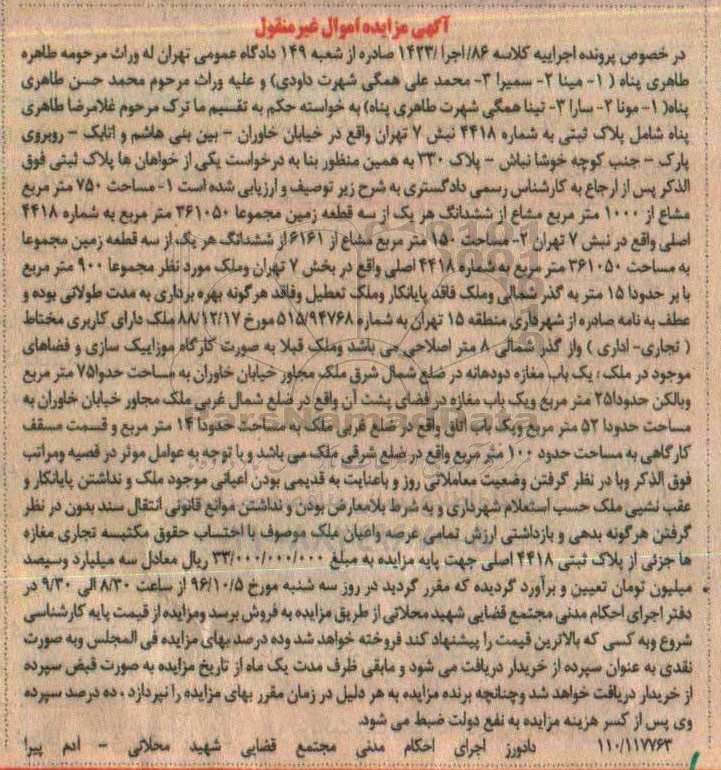 آگهی مزایده اموال غیرمنقول
در خصوص پرونده اجراییه کلاسه ۸۶/اجرا/۱۴۲۳ صادره از شعبه ۱۴۹ دادگاه عمومی تهران له وراث مرحومه طاهره
طاهری پناه ( ۱- مینا ۲- سمیرا ۳- محمد علی همگی شهرت داودی) و علیه وراث مرحوم محمد حسن طاهری
پناه( ۱-مونا ۲- سارا ۳- تینا همگی شهرت طاهری پناه) به خواسته حکم به تقسیم ما ترک مرحوم غلامرضا طاهری
پناه شامل پلاک ثبتی به شماره ۴۴۱۸ نبش ۷ تهران واقع در خیابان خاوران - بین بنی هاشم و اتابک - روبروی
پارک - جنب کوچه خوشا نباش - پلاک ۳۳۰ به همین منظور بنا به درخواست یکی از خواهان ها پلاک ثبتی فوق
الذکر پس از ارجاع به کارشناس رسمی دادگستری به شرح زیر توصیف و ارزیابی شده است ۱- مساحت ۷۵۰ متر مربع
مشاع از ۱۰۰۰ متر مربع مشاع از ششدانگ هر یک از سه قطعه زمین مجموعا ۳۶۱۰۵۰ متر مربع به شماره ۴۴۱۸
اصلی واقع در نبش ۷ تهران ۲- مساحت ۱۵۰ متر مربع مشاع از ۶۱۶۱ از ششدانگ هر یک از سه قطعه زمین مجموعا
به مساحت ۳۶۱۰۵۰ متر مربع به شماره ۴۴۱۸ اصلی واقع در بخش ۷ تهران وملک مورد نظر مجموعا ۹۰۰ متر مربع
با بر حدودا ۱۵ متر به گذر شمالی وملک فاقد پایانکار وملک تعطیل وفاقد هرگونه بهره برداری به مدت طولانی بوده و
عطف به نامه صادره از شهرداری منطقه ۱۵ تهران به شماره ۵۱۵/۹۴۷۶۸ مورخ ۸۸/۱۲/۱۷ ملک دارای کاربری مختاط
( تجاری- اداری ) واز گذر شمالی ۸ متر اصلاحی می باشد وملک قبلا به صورت کارگاه موزاییک سازی و فضاهای
موجود در ملک ؛ یک باب مغازه دودهانه در ضلع شمال شرق ملک مجاور خیابان خاوران به مساحت حدودا۷۵ متر مربع
وبالکن حدودا۲۵ متر مربع ویک باب مغازه در فضای پشت آن واقع در ضلع شمال غربی ملک مجاور خیابان خاوران به
مساحت حدودا ۵۲ متر مربع ویک باب اتاق واقع در ضلع غربی ملک به مساحت حدودا ۱۴ متر مربع و قسمت مسقف
کارگاهی به مساحت حدود ۱۰۰ متر مربع واقع در ضلع شرقی ملک می باشد و با توجه به عوامل موثر در قضیه ومراتب
فوق الذکر وبا در نظر گرفتن وضعیت معاملاتی روز و باعنایت به قدیمی بودن اعیانی موجود ملک و نداشتن پایانکار و
عقب نشیبی ملک حسب استعلام شهرداری و به شرط بلامعارض بودن و نداشتن موانع قانونی انتقال سند بدون در نظر
گرفتن هرگونه بدهی و بازداشتی ارزش تمامی عرصه واعیان ملک موصوف با احتساب حقوق مکتبسه تجاری مغازه
ها جزئی از پلاک ثبتی ۴۴۱۸ اصلی جهت پایه مزایده به مبلغ ۳۳/۰۰۰/۰۰۰/۰۰۰ ریال معادل سه میلیارد وسیصد
میلیون تومان تعیین و برآورد گردیده که مقرر گردید در روز سه شنبه مورخ ۹۶/۱۰/۵ از ساعت ۸/۳۰ الی ۹/۳۰ در
دفتر اجرای احکام مدنی مجتمع قضایی شهید محلاتی از طریق مزایده به فروش برسد ومزایده از قیمت پایه کارشناسی
شروع وبه کسی که بالاترین قیمت را پیشنهاد کند فروخته خواهد شد وده درصد بهای مزایده فی المجلس وبه صورت
نقدی به عنوان سپرده از خریدار دریافت می شود و مابقی ظرف مدت یک ماه از تاریخ مزایده به صورت قبض سپرده
از خریدار دریافت خواهد شد وچنانچه برنده مزایده به هر دلیل در زمان مقرر بهای مزایده را نپردازد ، ده درصد سپرده
وی پس از کسر هزینه مزایده به نفع دولت ضبط می شود.
۱۱۰/۱۱۷۷۶۳ دادورز اجرای احکام مدنی مجتمع قضایی شهید محلاتی - ادم پیرا